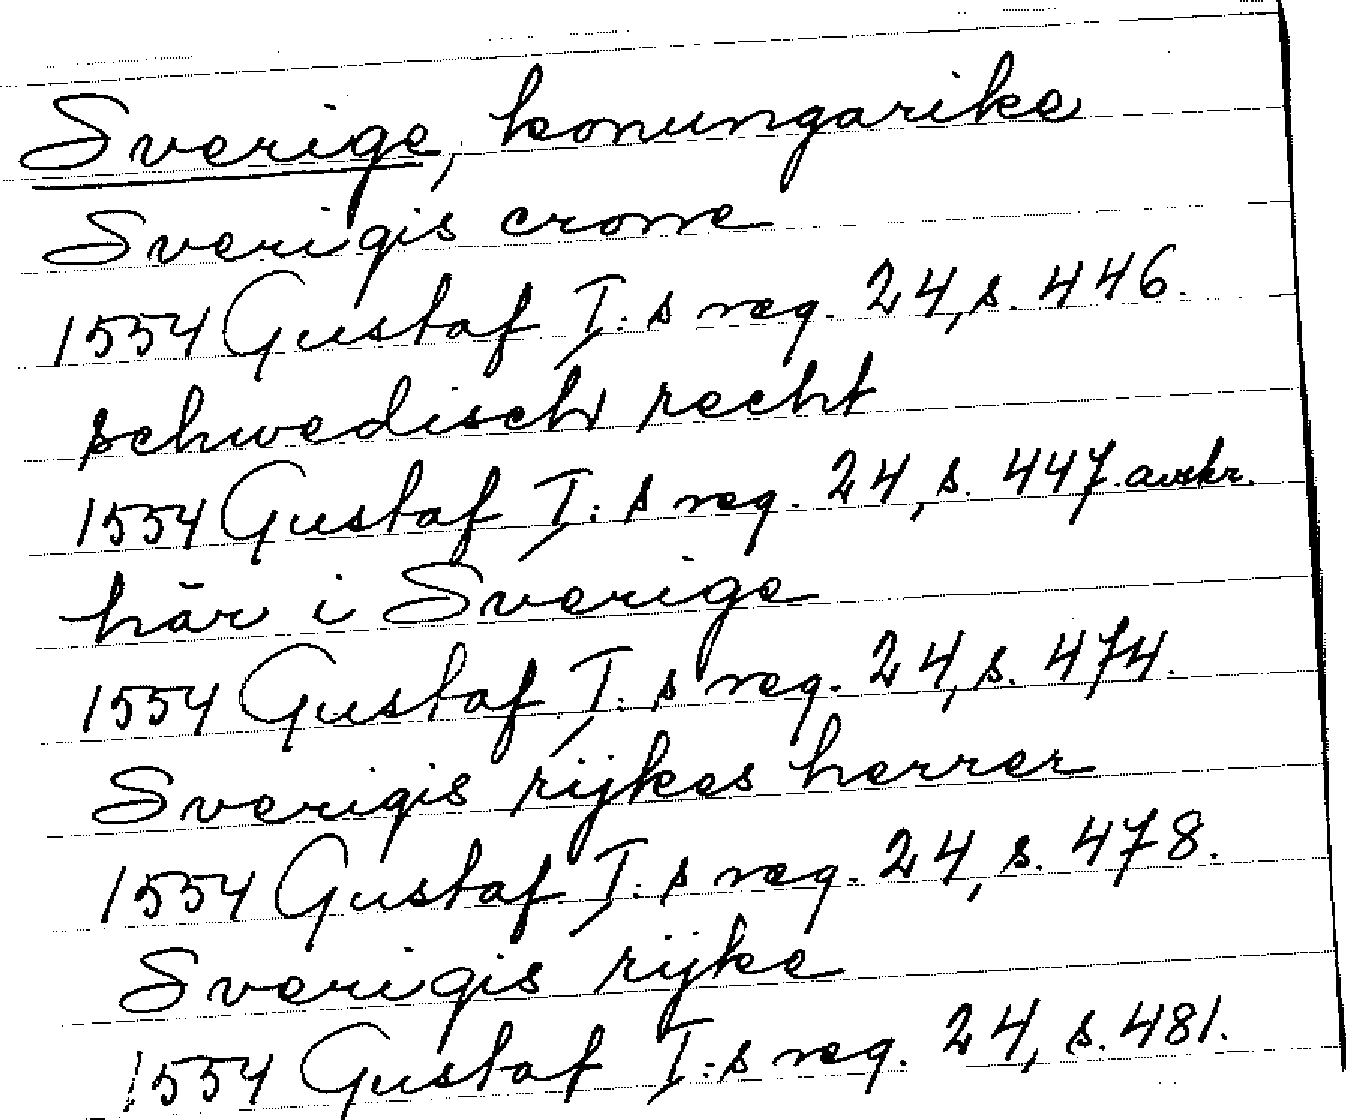 Sverige, konungarike
Sverigis crone
1554 Gustaf I:s reg. 24, s. 446.
schwedisch recht
1554 Gustaf I:s reg. 24, s. 447. avskr.
här i Sverige
1554 Gustaf I:s reg. 24, s. 474.
Sverigis rijkes herrer
1554 Gustaf I:s reg. 24, s. 478.
Sverigis rijke
1554 Gustaf I:s reg. 24, s. 481.